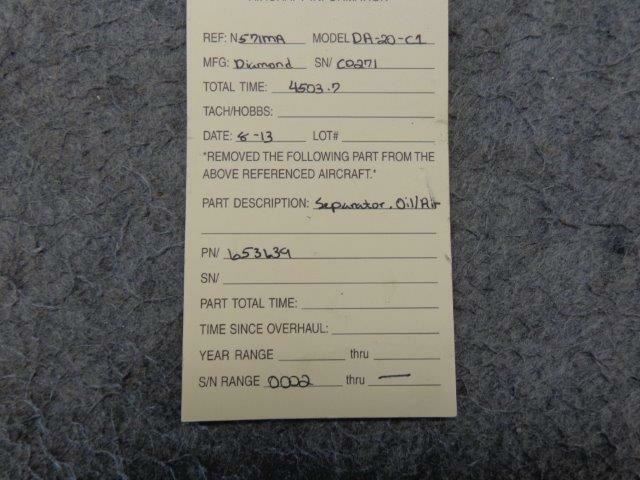 AIRCRAFT INFORMATION
REF: N571MA MODEL DA-20-C1
MFG: Diamond SN/ C0271
TOTAL TIME: 4503.7
TACH/HOBBS:
DATE: 8-13 LOT#
*REMOVED THE FOLLOWING PART FROM THE
ABOVE REFERENCED AIRCRAFT.*
PART DESCRIPTION: Separator, Oil/Air
PN/ 653639
SN/
PART TOTAL TIME:
TIME SINCE OVERHAUL:
YEAR RANGE thru
S/N RANGE 0002 thru —